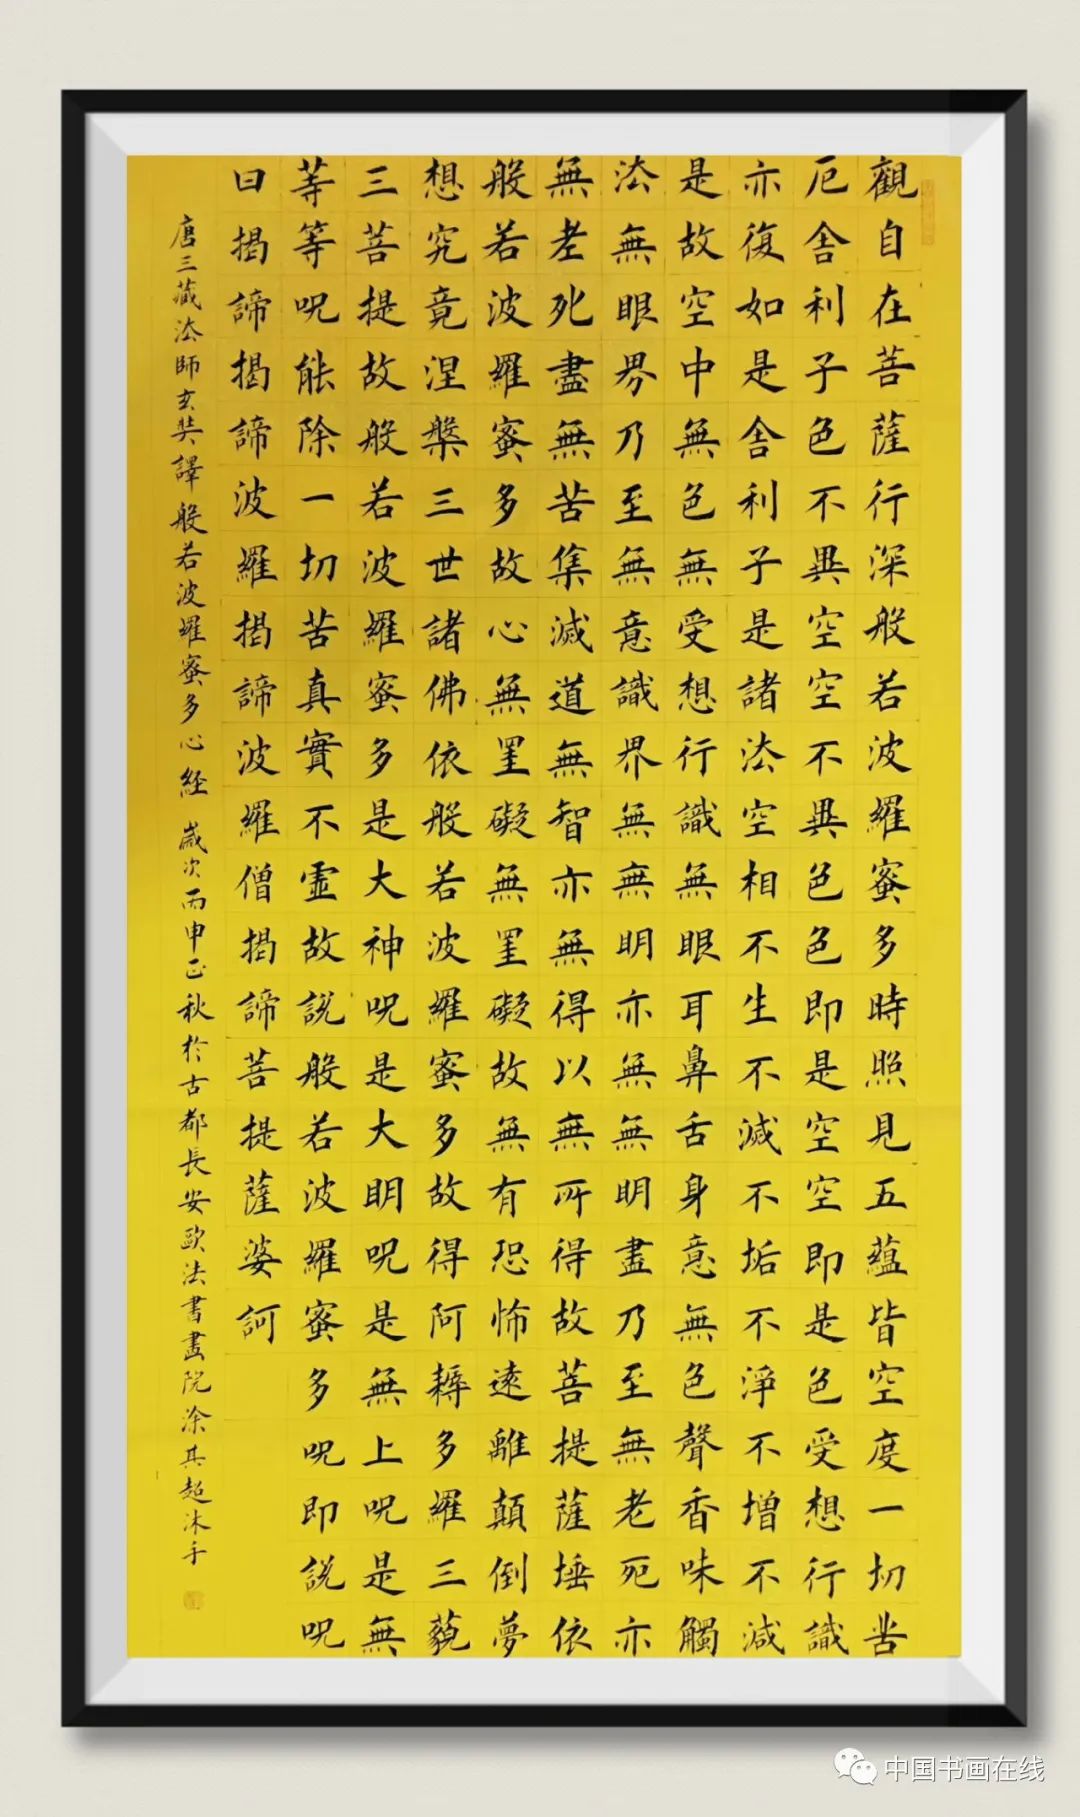 觀自在菩薩行深般若波羅蜜多時照見五蘊皆空度一切苦
厄舍利子色不異空空不異色色即是空空即是色受想行識
亦復如是舍利子是諸法空相不生不滅不垢不淨不增不減
是故空中無色無受想行識無眼耳鼻舌身意無色聲香味觸
法無眼界乃至無意識界無無明亦無無明盡乃至無老死亦
無老死盡無苦集滅道無智亦無得以無所得故菩提薩埵依
般若波羅蜜多故心無罣礙無罣礙故無有恐怖遠離顛倒夢
想究竟涅槃三世諸佛依般若波羅蜜多故得阿耨多羅三藐
三菩提故般若波羅蜜多是大神呪是大明呪是無上呪是無
等等呪能除一切苦真實不虛故說般若波羅蜜多呪即說呪
曰揭諦揭諦波羅揭諦波羅僧揭諦菩提薩婆訶
唐三藏法師玄奘譯般若波羅蜜多心經 歲次丙申正秋於古都長安歐法書畫院涂其超沐手
中国书画在线